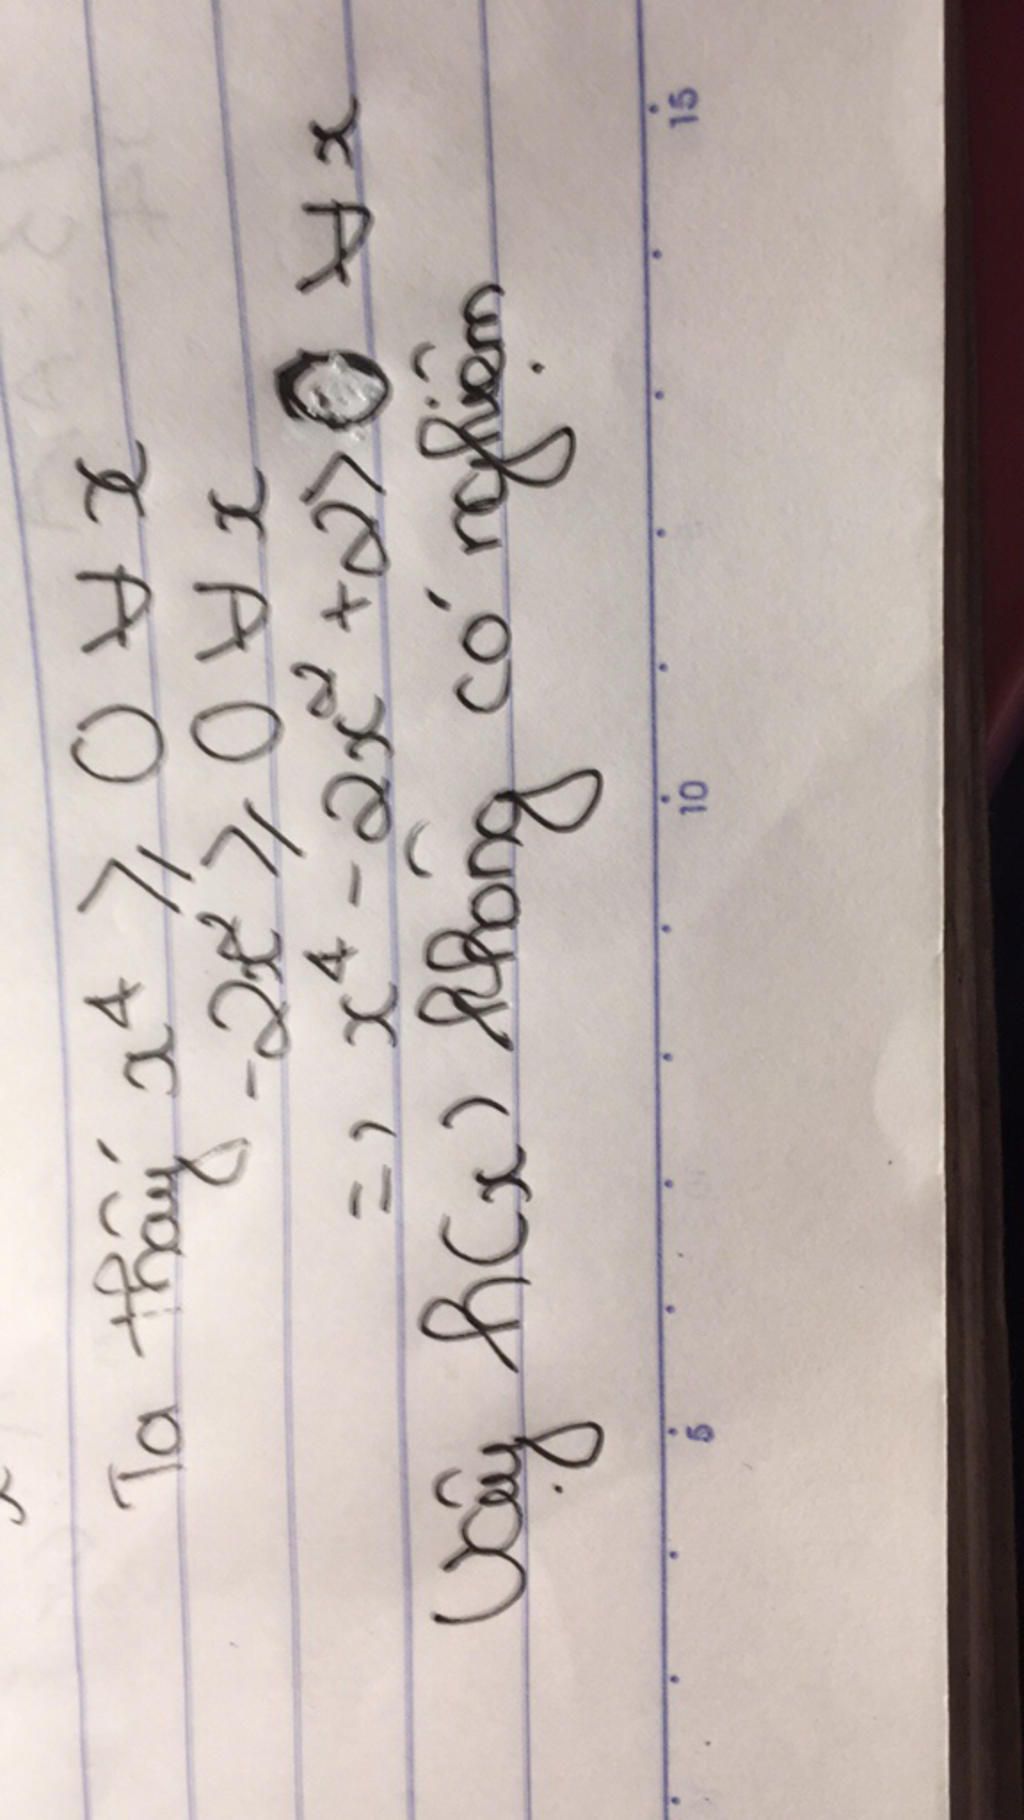 Ta thấy x⁴ ⩾ 0 ∀ x
-2x² ⩾ 0 ∀ x
=> x⁴ - 2x² + 2 > 0 ∀ x
Vậy h(x) không có nghiệm
5 10 15